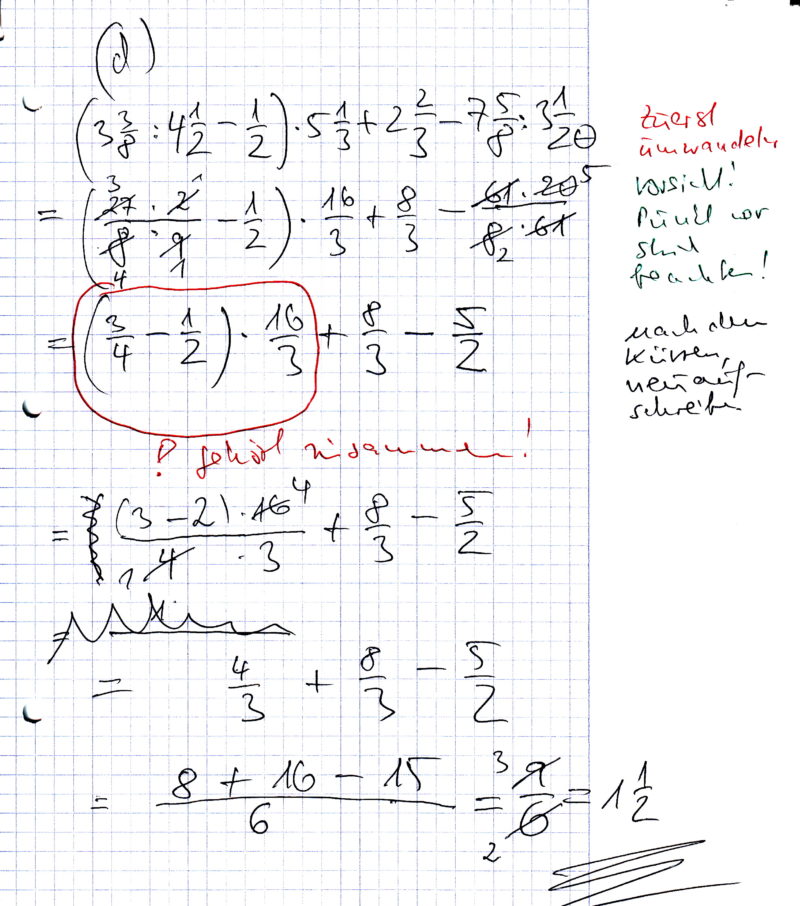 (d)
(3 3/8 : 4 1/2 − 1/2) · 5 1/3 + 2 2/3 − 7 5/8 : 3 1/20
zuerst
umwandeln
= (27 · 2 / 8 · 9 − 1/2) · 16/3 + 8/3 − 61 · 20 / 8 · 61
3 1 4 1 5 2
Vorsicht!
Punkt vor
Strich
beachten!
= (3/4 − 1/2) · 16/3 + 8/3 − 5/2
nach dem
Kürzen,
neu auf-
schreiben
! gehört zusammen!
= (3 − 2) · 16 / 4 · 3 + 8/3 − 5/2
4 1
= 4/3 + 8/3 − 5/2
= 8 + 16 − 15 / 6 = 9/6 = 1 1/2
3 2